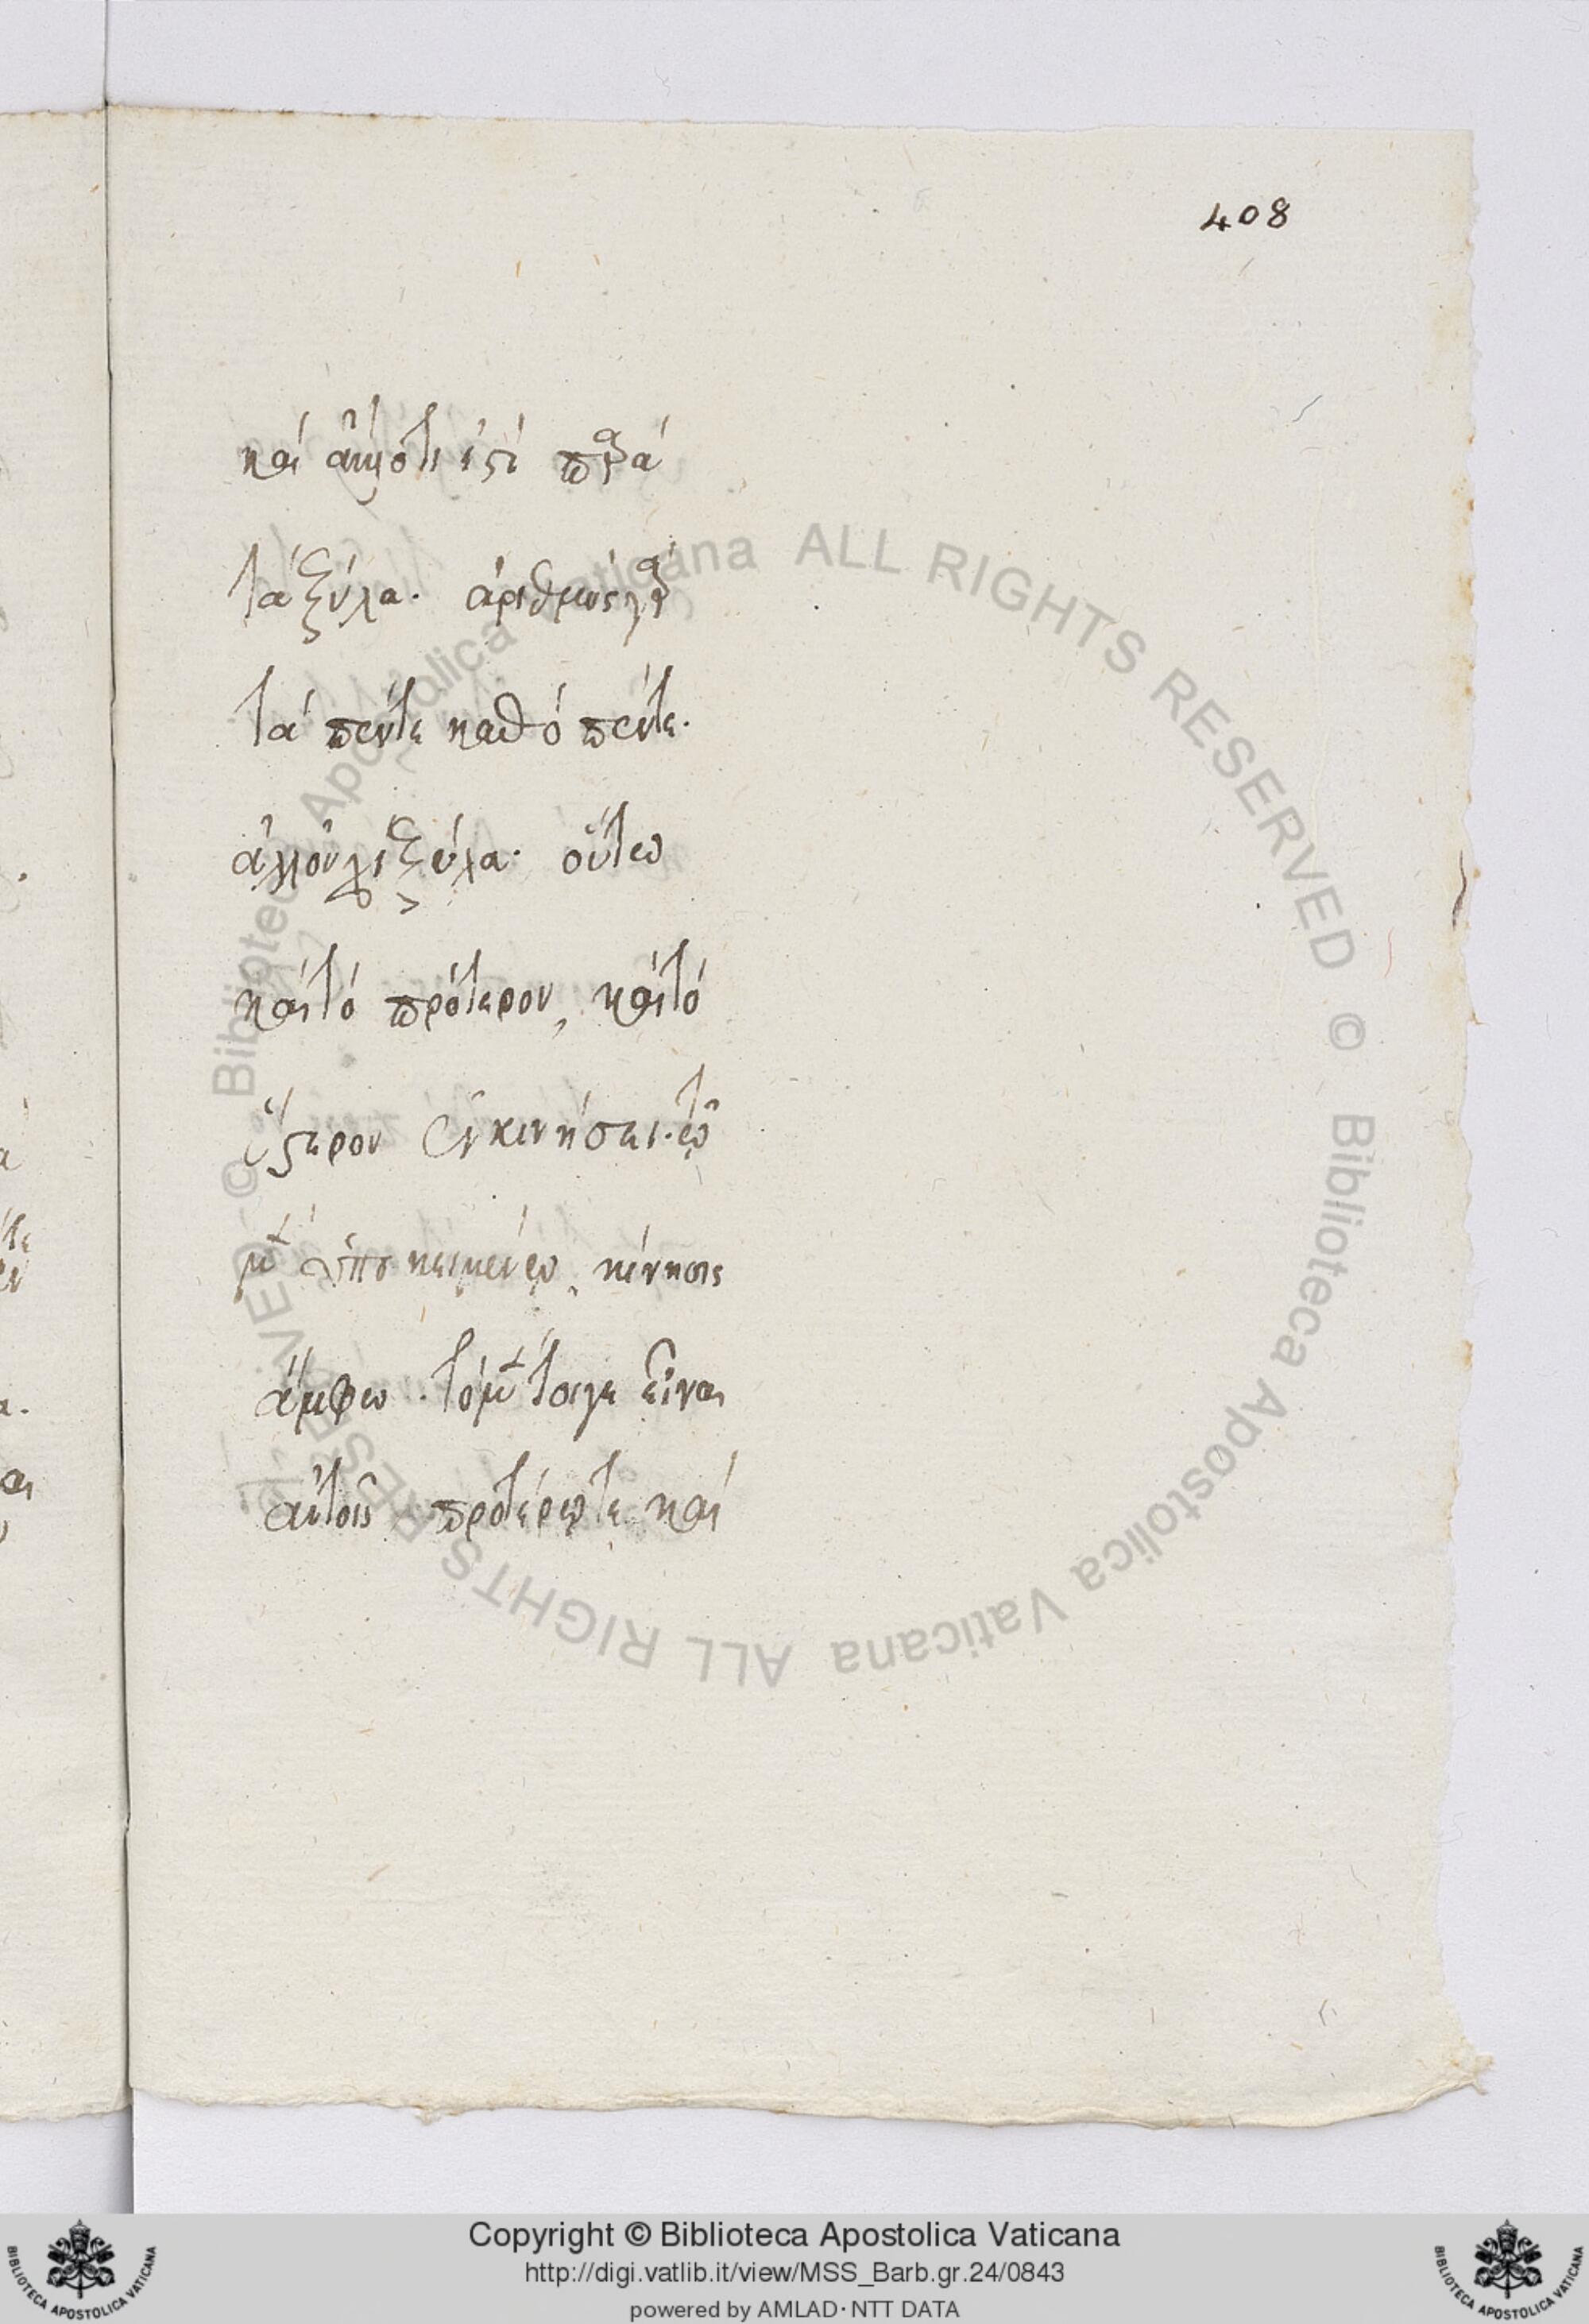 408
καὶ
τὰ ξύλα. ἀριθμὸς γὰρ
τὰ πέντε καθὸ πέντε.
ἀλλ' οὐχὶ ξύλα. οὕτω
καὶ τὸ πρότερον, καὶ τὸ
ὕστερον ἐν κινήσει. τῷ
μὲν ὑποκειμένῳ, κίνησις
ἄμφω. τὸ μέντοιγε εἶναι
αὐτοῖς προτέρῳ τε καὶ
© Biblioteca Apostolica Vaticana ALL RIGHTS RESERVED © Biblioteca Apostolica Vaticana ALL RIGHTS RESERVED
Copyright © Biblioteca Apostolica Vaticana
http://digi.vatlib.it/view/MSS_Barb.gr.24/0843
powered by AMLAD · NTT DATA
BIBLIOTECA APOSTOLICA VATICANA
BIBLIOTECA APOSTOLICA VATICANA